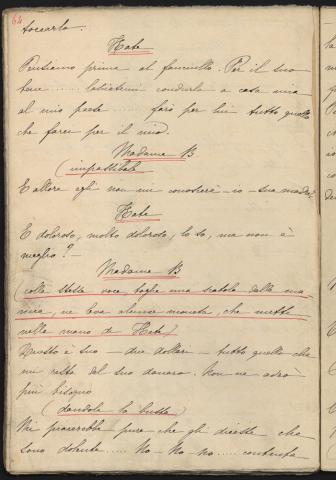 64
toccarlo.
Kate
Pensiamo prima al fanciullo. Per il suo
bene ..... lasciatemi condurlo a casa mia
al mio posto ..... farò per lui tutto quello
che farei per il mio.
Madame B
(impassibile
E allora egli non mi conoscerà - io - sua madre?
Kate
È doloroso, molto doloroso, lo so, ma non è
meglio? -
Madame B
(colla stessa voce, toglie una scatola dalla ma
nica, ne leva alcune monete, che mette
nella mano di Kate)
Questo è suo - due dollari - tutto quello che
mi resta del suo denaro. Non ne avrò
più bisogno
(dandole la busta)
Mi piacerebbe pure che gli diceste che
sono dolente ..... No - No - no ..... contenta